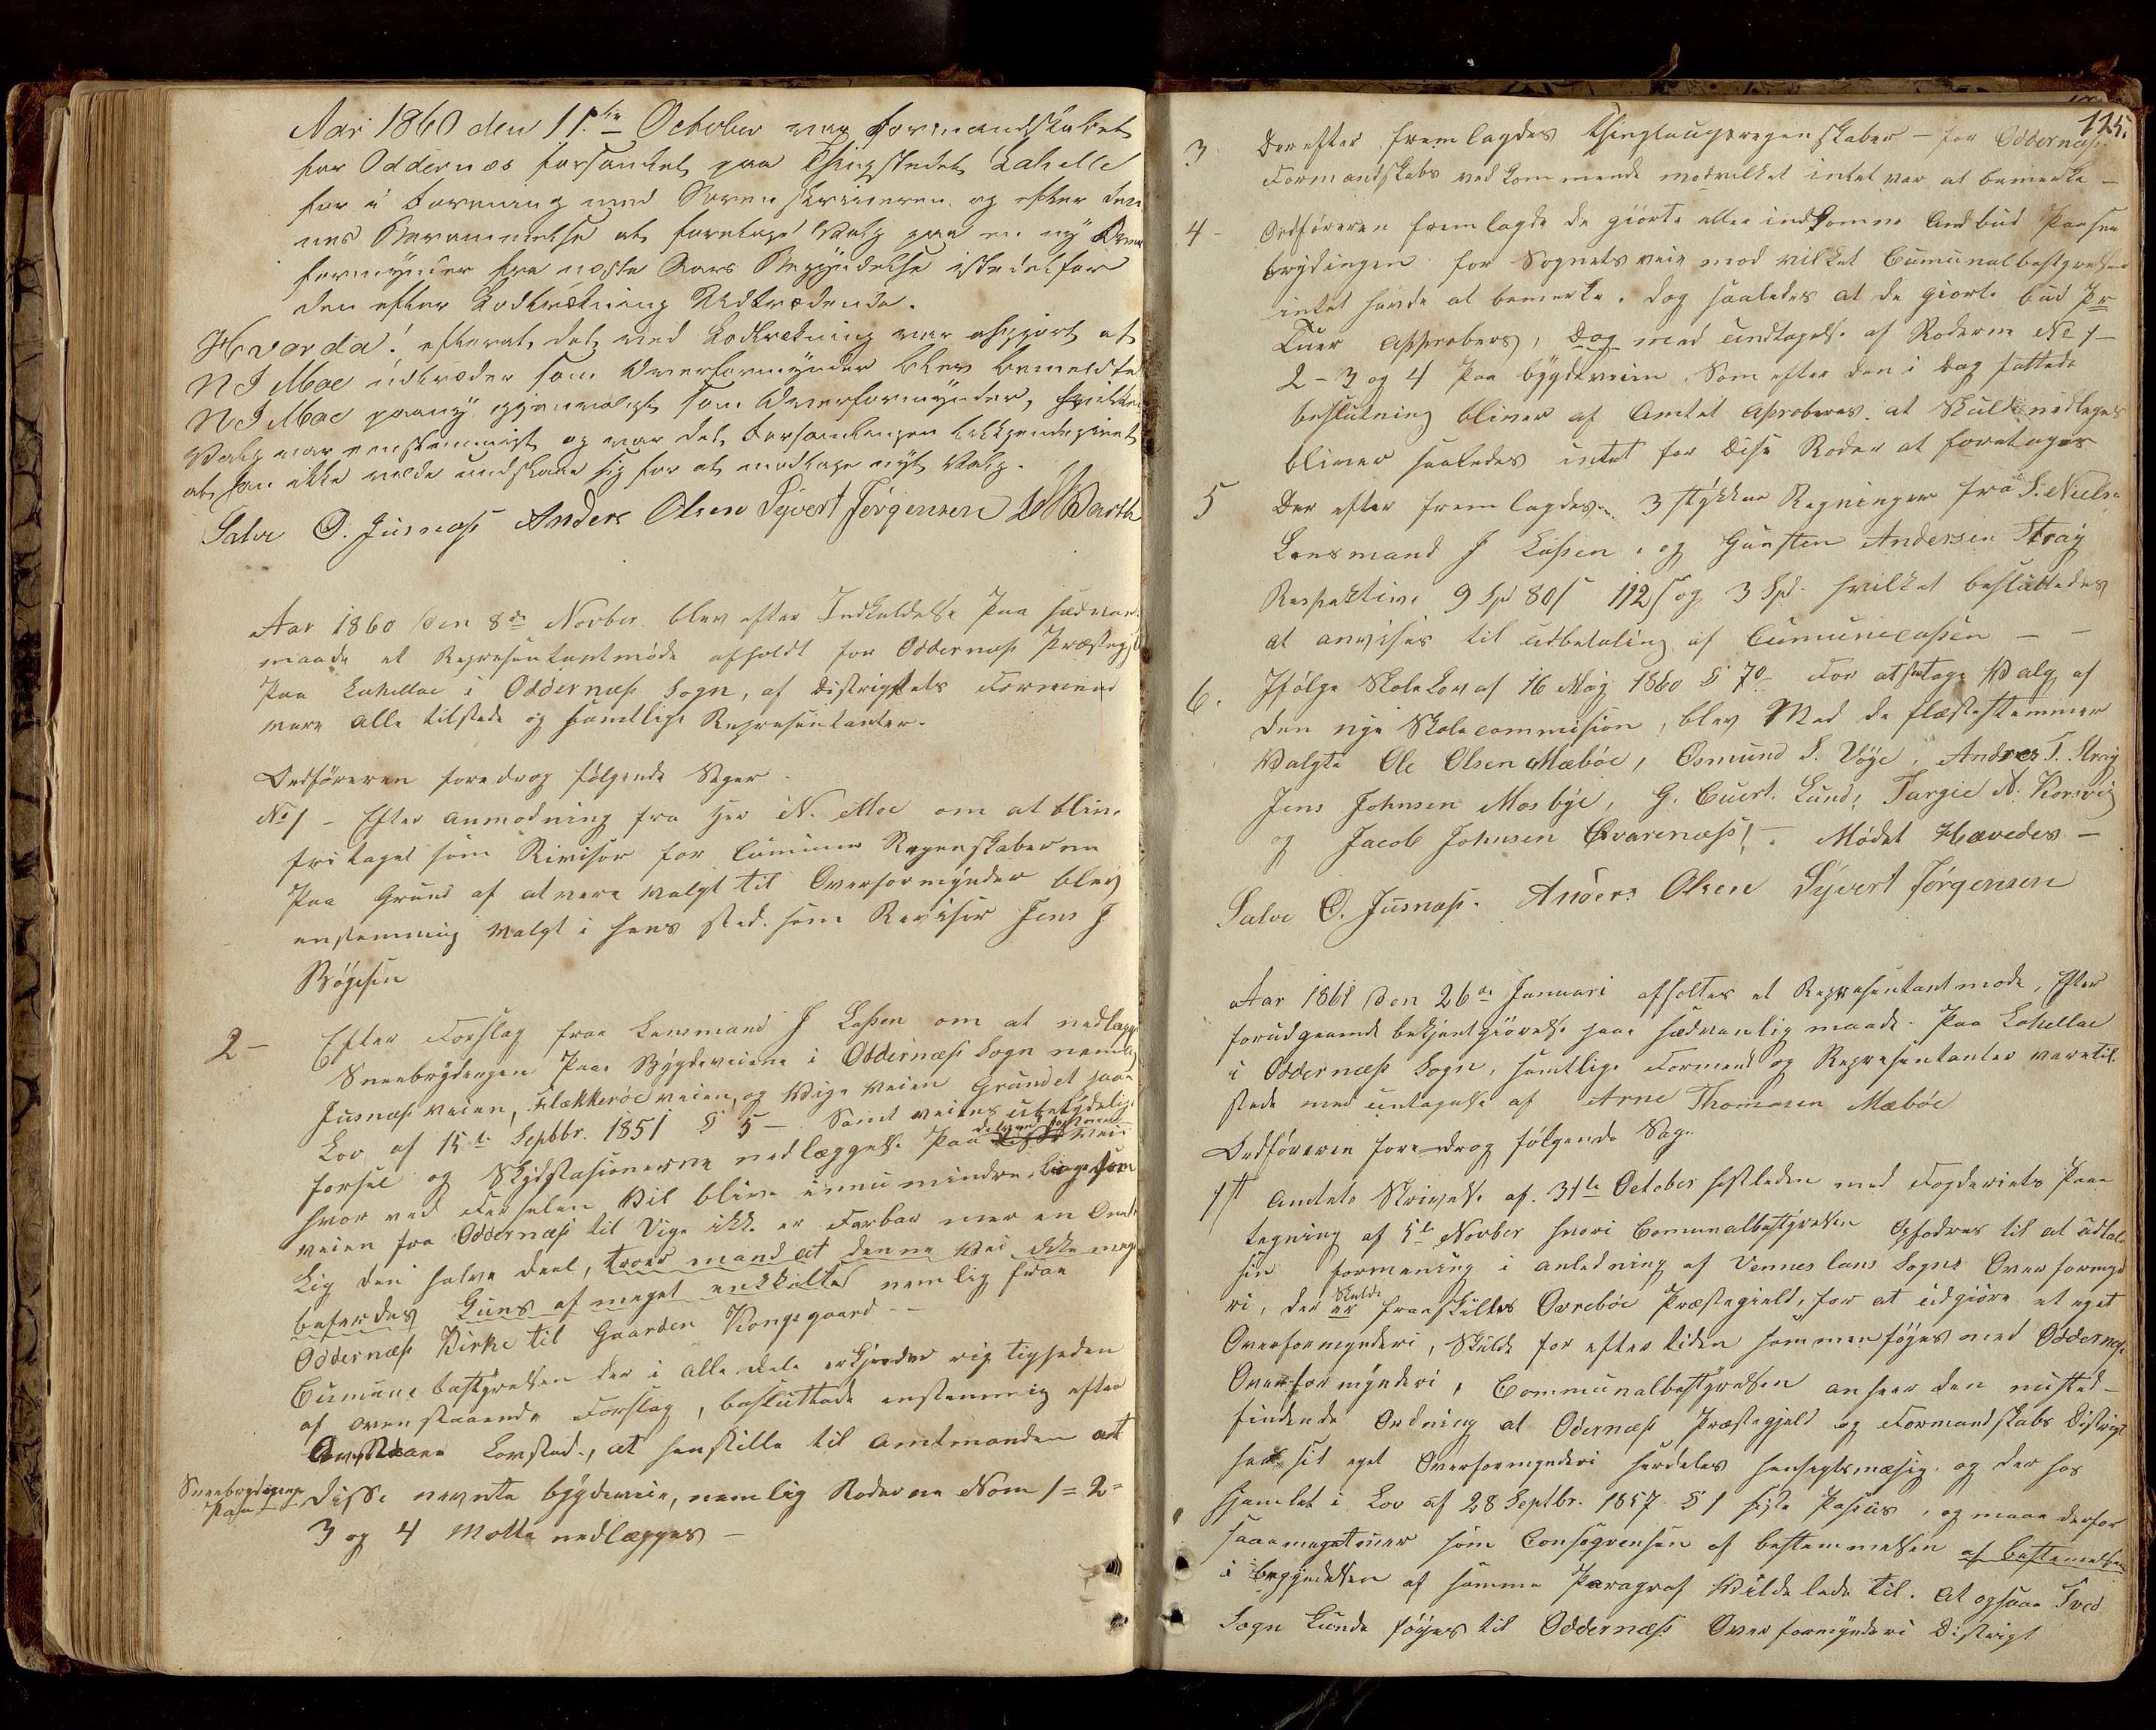 Aar 1860 den 11te October var Formandskabet
for Oddernæs forsamlet paa Thingstedet Lahelle
for i Forening med Sorenskriveren og efter den
nes Berammelse at foretage Valg paa en ny Over
formynder fra næste Aars Begyndelse istedetfor
den efter Lodtrækning Udtrædende.
Hvorda! efterat det ved Lodtrekning var afgjort at
N J Moe udtræder som Overformynder blev bemeldte
N J Moe paany gjenvalgt som Overformynder, hvilket
Valg var eenstemmigt og var det Forsamlingen tilkjendegivet
at han ikke vilde undslaae sig for at modtage nyt Valg.
Salve O. Jusnæs Anders Olsen Syvert Jørgensen Barth
Aar 1860 den 8de Novber blev efter Indkaldelse Paa sædvan
maade et Representantmøde afholdt for Oddernæs Præstegj
Paa Lahellae i Oddernæs Sogn, af Distriktets Formend
vare alle tilstede og samtlige Representanter.
Ordføreren foredrog følgende Sager
No 1 - Efter anmodning fra Her N. Moe om at blive
fritaget som Revisor for Cumune Regnskaberne
Paa Grund af at vere valgt til Overformynder blev
enstemmig valgt i hans sted som Revisor Jens J
Bøgesen
2 - Efter Forslag fraa Lensmand J Lassen om at nedlægge
Sneebrydingen Paa Bygdeveiene i Oddernæs Sogn nemlig
Jusnæs veien, Flækkerøe veien, og Vige veien Grundet paa
Lov af 15de Septbr. 1851 § 5 - Samt veiens ubetydelige
forsel og Skydstasionerne nedlæggelse Paa disse veie
hvor ved Ferselen Vil blive innu mindre, Ligesom
veien fra Oddernæs til Vige ikke er Farbar mer en Omt
lig den halve deel, troed mand at denne Vei ikke meget
beferdes Guns af meget enkkelte nemlig fraa
Oddernæs Kirke til Gaarden Kongsgaard --
Cumune bestyrelsen der i alle dele erkjender rigtigheden
af ovenstaaende Forslag, besluttede enstemmig efter
Lovsted., at henstille til Amtmanden at
Sneebrydingen
Paa disse nevnte bygdeveie, nemlig Roderne Nom 1 = 2 =
3 og 4 Motte nedlægges -
125.
3 Derefter fremlagdes Thinglaugsregenskaber - for Oddernæs
Formandskabs ved kommende modvilket intet var at bemerke -
4 - Ordføreren fremlagde de giorte eller indkomne Anbud Paa snee
brydingen for Sognets veie mod vilket Cumunalbestyrelsen
intet havde at bemerke, dog saaledes at de giorte bud Pr
Tuer Approberes, dog med undtagelse af Roderne No 1 -
2 - 3 og 4 Paa bygdeveien. Som efter den i Dag fattede
beslutning bliver af Amtet Aproberes at Skulde nedlegges
bliver saaledes intet for Disse Roder at foretages
5 Der efter fremlagdes 3 stykker Regninger fra S. Nielse
Lensmand J Lassen, og Gunsten Andersen Stray
Respektive 9 Sp 80 s 112 s og 3 Spd. hvilket besluttedes
at anvises til udbetaling af Cumunecassen - -
6. Ifølge Skole Lov af 16 May 1860 § 70 For at fretage Valg af
den nye Skolecommision, blev Med de flæstestemmer
Valgte Ole Olsen Mæbøe, Osmund S. Vøye, Andres T. Stray
Jens Johnsen Mosbye, G. Cuert. Lund, Targie A. Korsvig
og Jacob Johnsen Qvarenæss! - Mødet Hævedes -
Salve O. Jusnæs. Anders Olsen Syvert Jørgensen
Aar 1861 den 26de Januari afholtes et Representantmøde, Efter
forudgaaende bekjentgiørelse paa sædvanlig maade. Paa Lahellae
i Oddernæs Sogn, samtlige Formend og Representanter varetil
stede med untagelse af Arne Thomasen Mæbøe
Ordføreren fore drog følgende Sag.
1st Amtets Skrivelse af. 31te October sistleden med Fogderiets Paa
tegning af 5te Novber hvori Comunalbestyrelsen Opfodres til at udtale
sin formening i anledning af Venneslans Sogns Overformyd
ri, der Skulde er fraskilltes Øvrebøe Præstegield, for at udgiøre et eget
Overformynderi, Skulde for efter tiden sammenføyes med Oddernæs
Overformynderi, Communalbestyrelsen anseer den nusted-
findende Ordning at Odernæs Præstegjeld og Formandskabs Distrigt
har sit eget Overformynderi særdeles hensegtsmæsig og der hos
hjemlet i Lov af 28 Septbr. 1857 § 1 siste Passus, og maae derfor
saameget mer som Conseqvensen af bestemmelsen af bestemmelsen
i begyndelsen af samme Paragraf Vilde lede til. At ogsaae Tved
Sogn Kunde føyes til Oddernæs Overformynderi Distrigt